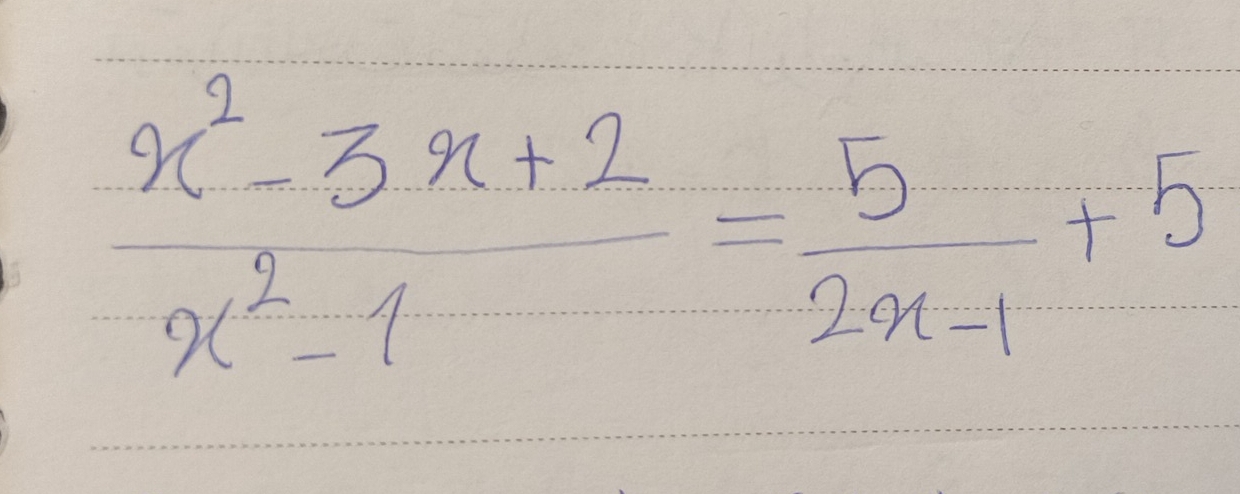 x² - 3x + 2 / x² - 1 = 5 / 2x - 1 + 5